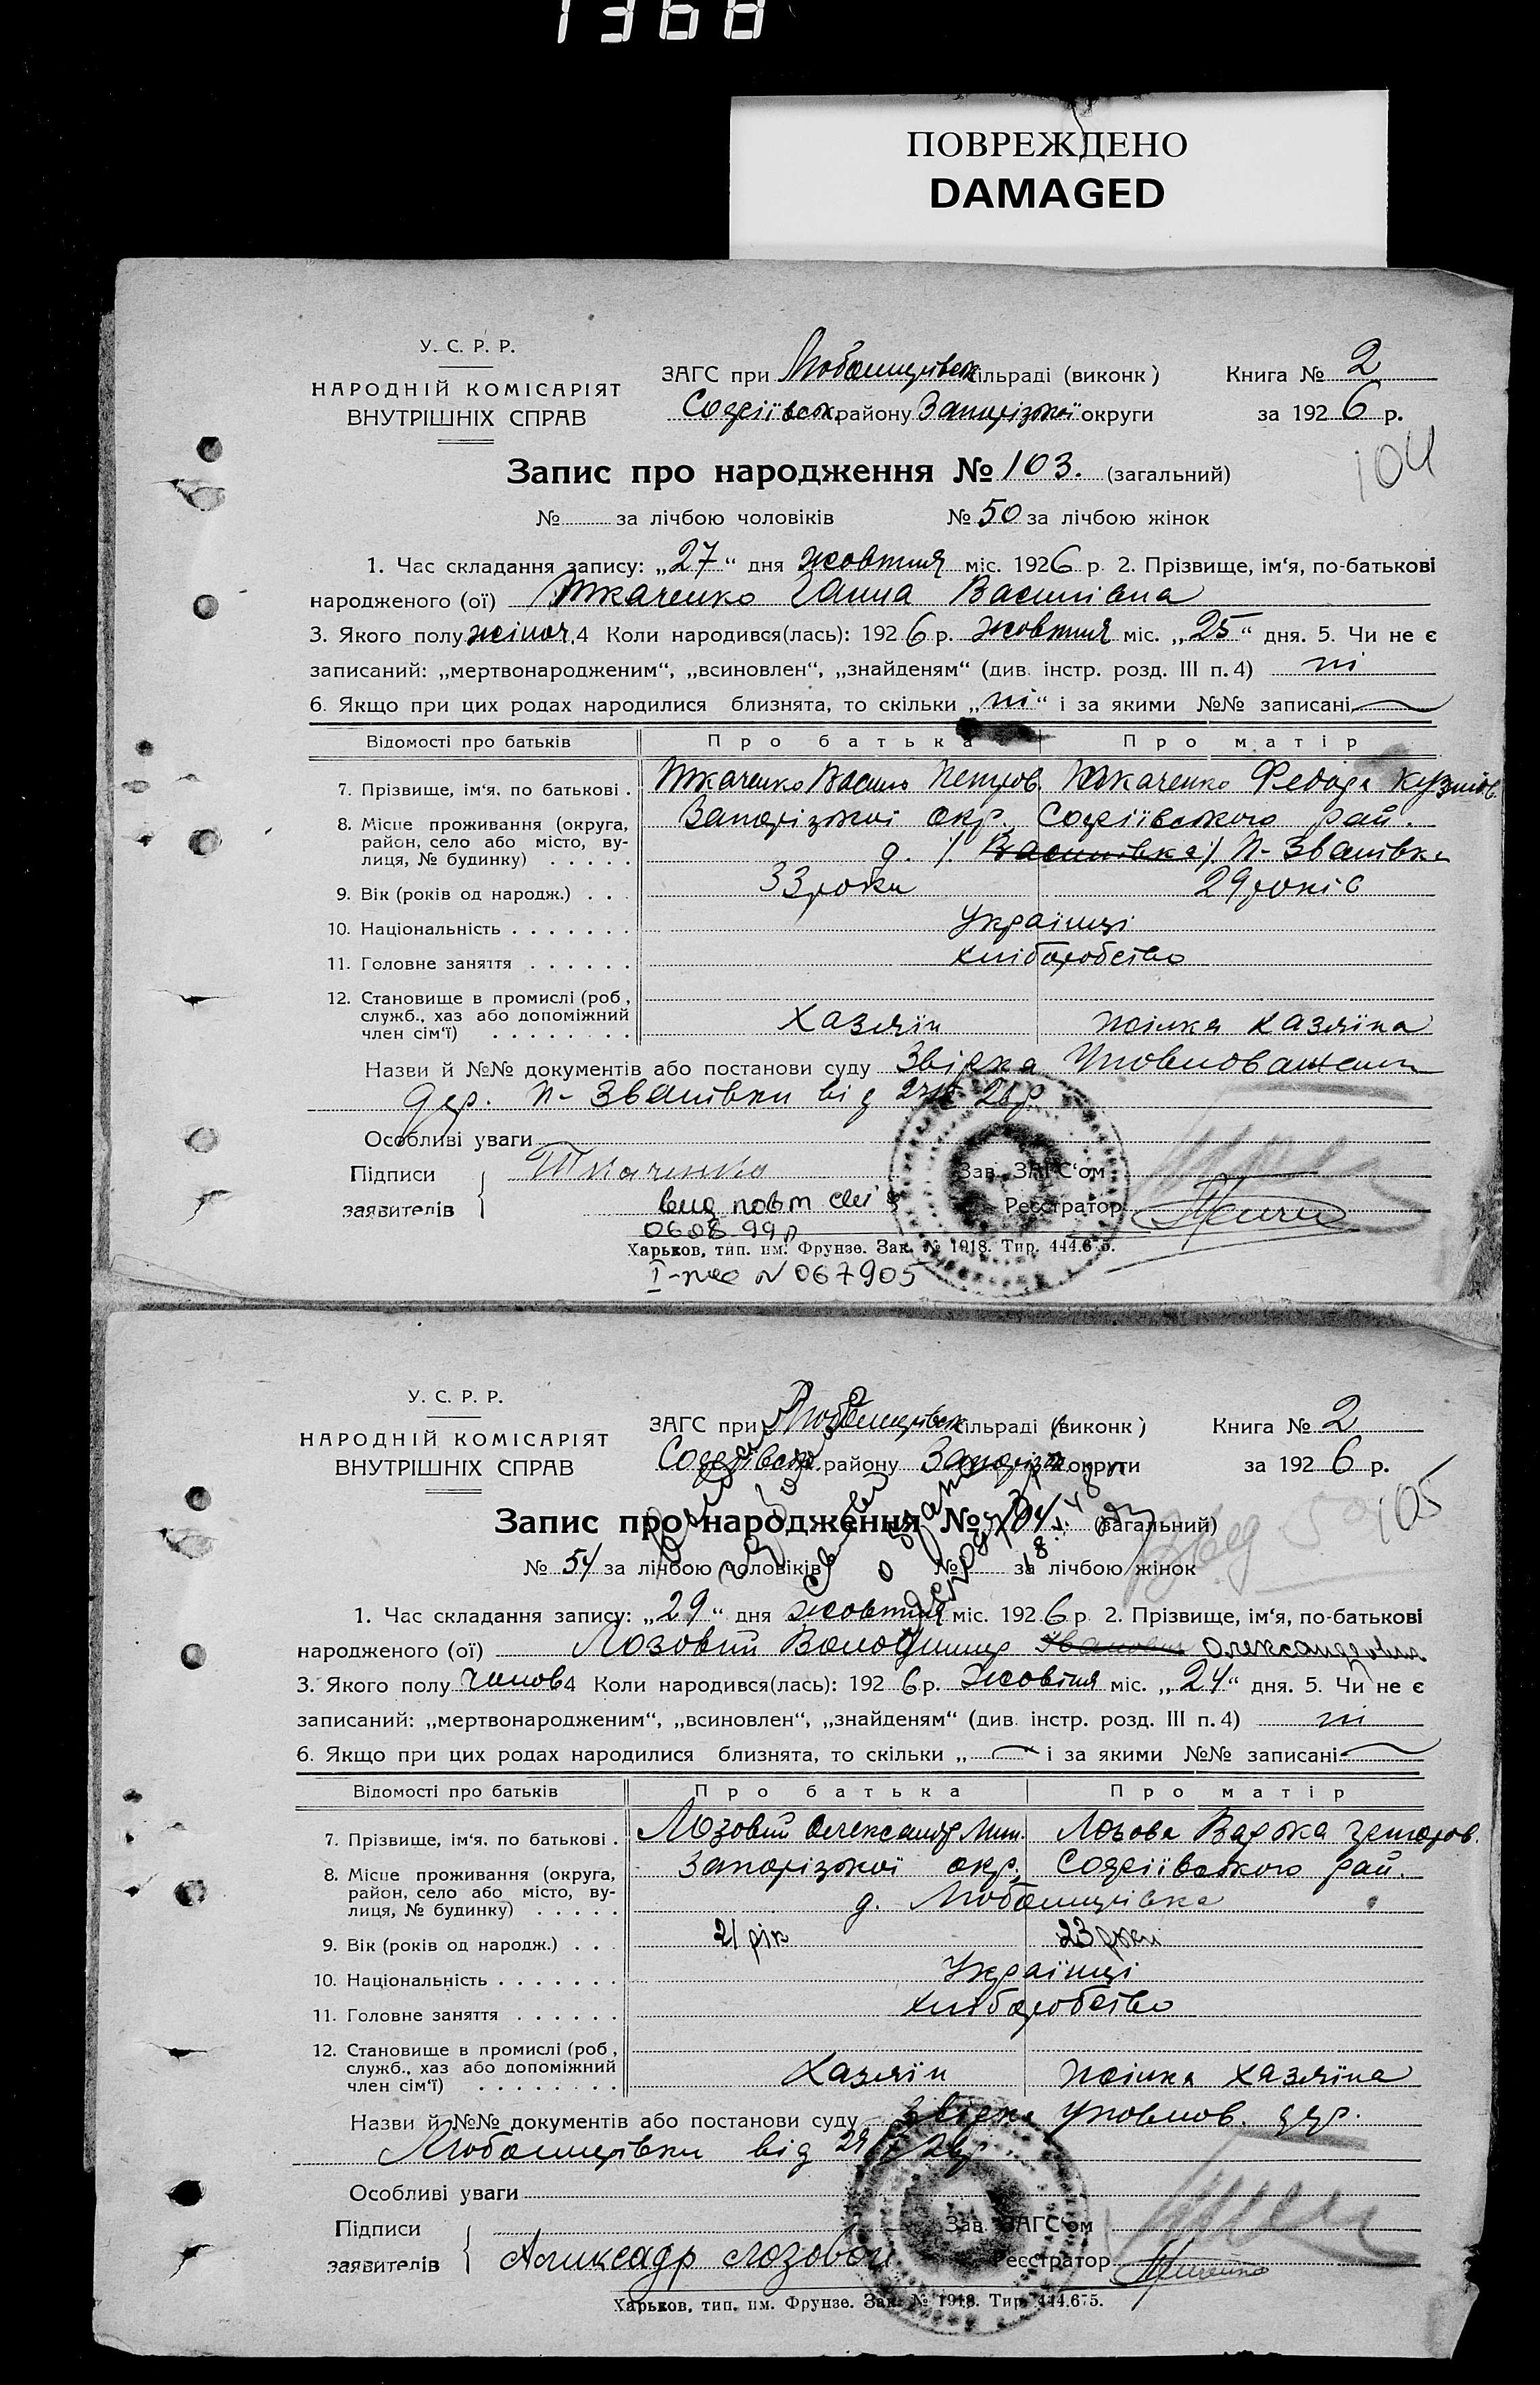 1368
ПОВРЕЖДЕНО
DAMAGED
У. С. Р. Р.
НАРОДНІЙ КОМІСАРІЯТ
ВНУТРІШНІХ СПРАВ
ЗАГС при Любомирівськ сільраді (виконк) Книга № 2
Софіївськ. району Запорізької округи за 1926 р.
104
Запис про народження № 103. (загальний)
№ за лічбою чоловіків № 50 за лічбою жінок
1. Час складання запису: „27“ дня жовтня міс. 1926 р. 2. Прізвище, ім‘я, по-батькові
народженого (ої) Ткаченко Ганна Василівна
3. Якого полу жіноч. 4 Коли народився(лась): 1926 р. жовтня міс. „25“ дня. 5. Чи не є
записаний: „мертвонародженим“, „всиновлен“, „знайденям“ (див. інстр. розд. III п. 4) ні
6. Якщо при цих родах народилися близнята, то скільки „ні“ і за якими №№ записані
Відомості про батьків Про батька Про матір
7. Прізвище, ім‘я, по батькові . Ткаченко Василь Петров. Ткаченко Федора Кузмов.
8. Місце проживання (округа, Запорізької окр., Софіївського рай.
район, село або місто, ву-
лиця, № будинку) . . . . . д. /Василівка/ П-Званівка
9. Вік (років од народж.) . . . 33 роки 29 років
10. Національність . . . . . . . Українці
11. Головне заняття . . . . . . хліборобство
12. Становище в промислі (роб.,
служб., хаз або допоміжний
член сім‘ї) . . . . . . . . Хазяїн жінка хазяїна
Назви й №№ документів або постанови суду Звірка Уповноважен
дер. П-Званівки від 26 р.
Особливі уваги
Підписи
заявителів
Ткаченко
Зав. ЗАГС‘ом
Реєстратор
вид повт сві в
06 08 99 р
Харьков, тип. им. Фрунзе. Зак. № 1918. Тир. 444.675.
I-ЖС N 067905
У. С. Р. Р.
НАРОДНІЙ КОМІСАРІЯТ
ВНУТРІШНІХ СПРАВ
ЗАГС при Любомирівськ сільраді (виконк) Книга № 2
Софіївськ. району Запорізьк округи за 1926 р.
105
Запис про народження № 104. (загальний)
№ 54 за лічбою чоловіків № за лічбою жінок
1. Час складання запису: „29“ дня жовтня міс. 1926 р. 2. Прізвище, ім‘я, по-батькові
народженого (ої) Лозовий Володимир Іванович Олександрович
3. Якого полу чолов 4 Коли народився(лась): 1926 р. жовтня міс. „24“ дня. 5. Чи не є
записаний: „мертвонародженим“, „всиновлен“, „знайденям“ (див. інстр. розд. III п. 4) ні
6. Якщо при цих родах народилися близнята, то скільки „ “ і за якими №№ записані
Відомості про батьків Про батька Про матір
7. Прізвище, ім‘я, по батькові . Лозовий Олександр Мит. Лозова Варька Григоров.
8. Місце проживання (округа, Запорізької окр., Софіївського рай.
район, село або місто, ву-
лиця, № будинку) . . . . . д. Любомирівка
9. Вік (років од народж.) . . . 21 рік 23 роки
10. Національність . . . . . . . Українці
11. Головне заняття . . . . . . хліборобство
12. Становище в промислі (роб.,
служб., хаз або допоміжний
член сім‘ї) . . . . . . . . Хазяїн жінка хазяїна
Назви й №№ документів або постанови суду Звірка уповнов. дер.
Любомирівки від 29 26 р.
Особливі уваги
Підписи
заявителів
Аликсадр Лозовой
Зав. ЗАГС‘ом
Реєстратор
Харьков, тип. им. Фрунзе. Зак. № 1918. Тир. 444.675.